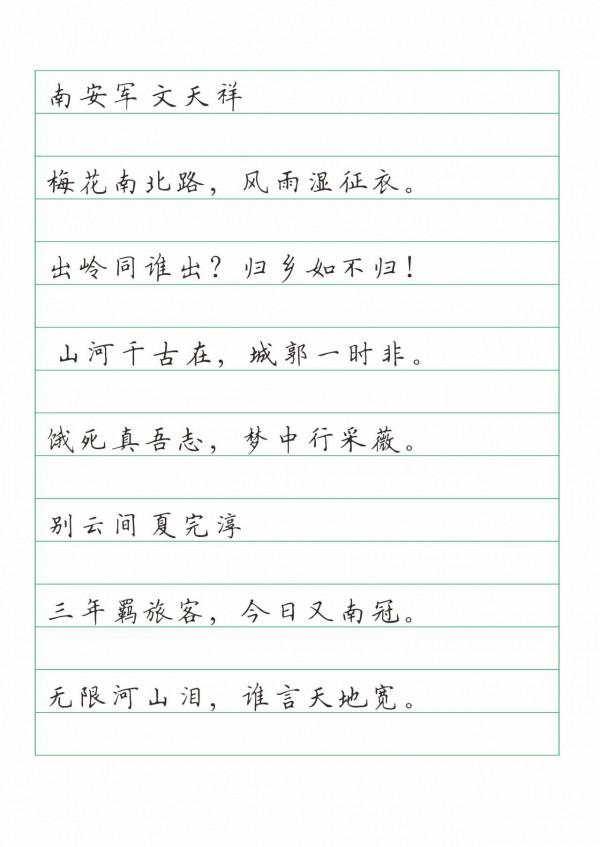 南安军 文天祥
梅花南北路，风雨湿征衣。
出岭同谁出？归乡如不归！
山河千古在，城郭一时非。
饿死真吾志，梦中行采薇。
别云间 夏完淳
三年羁旅客，今日又南冠。
无限河山泪，谁言天地宽。